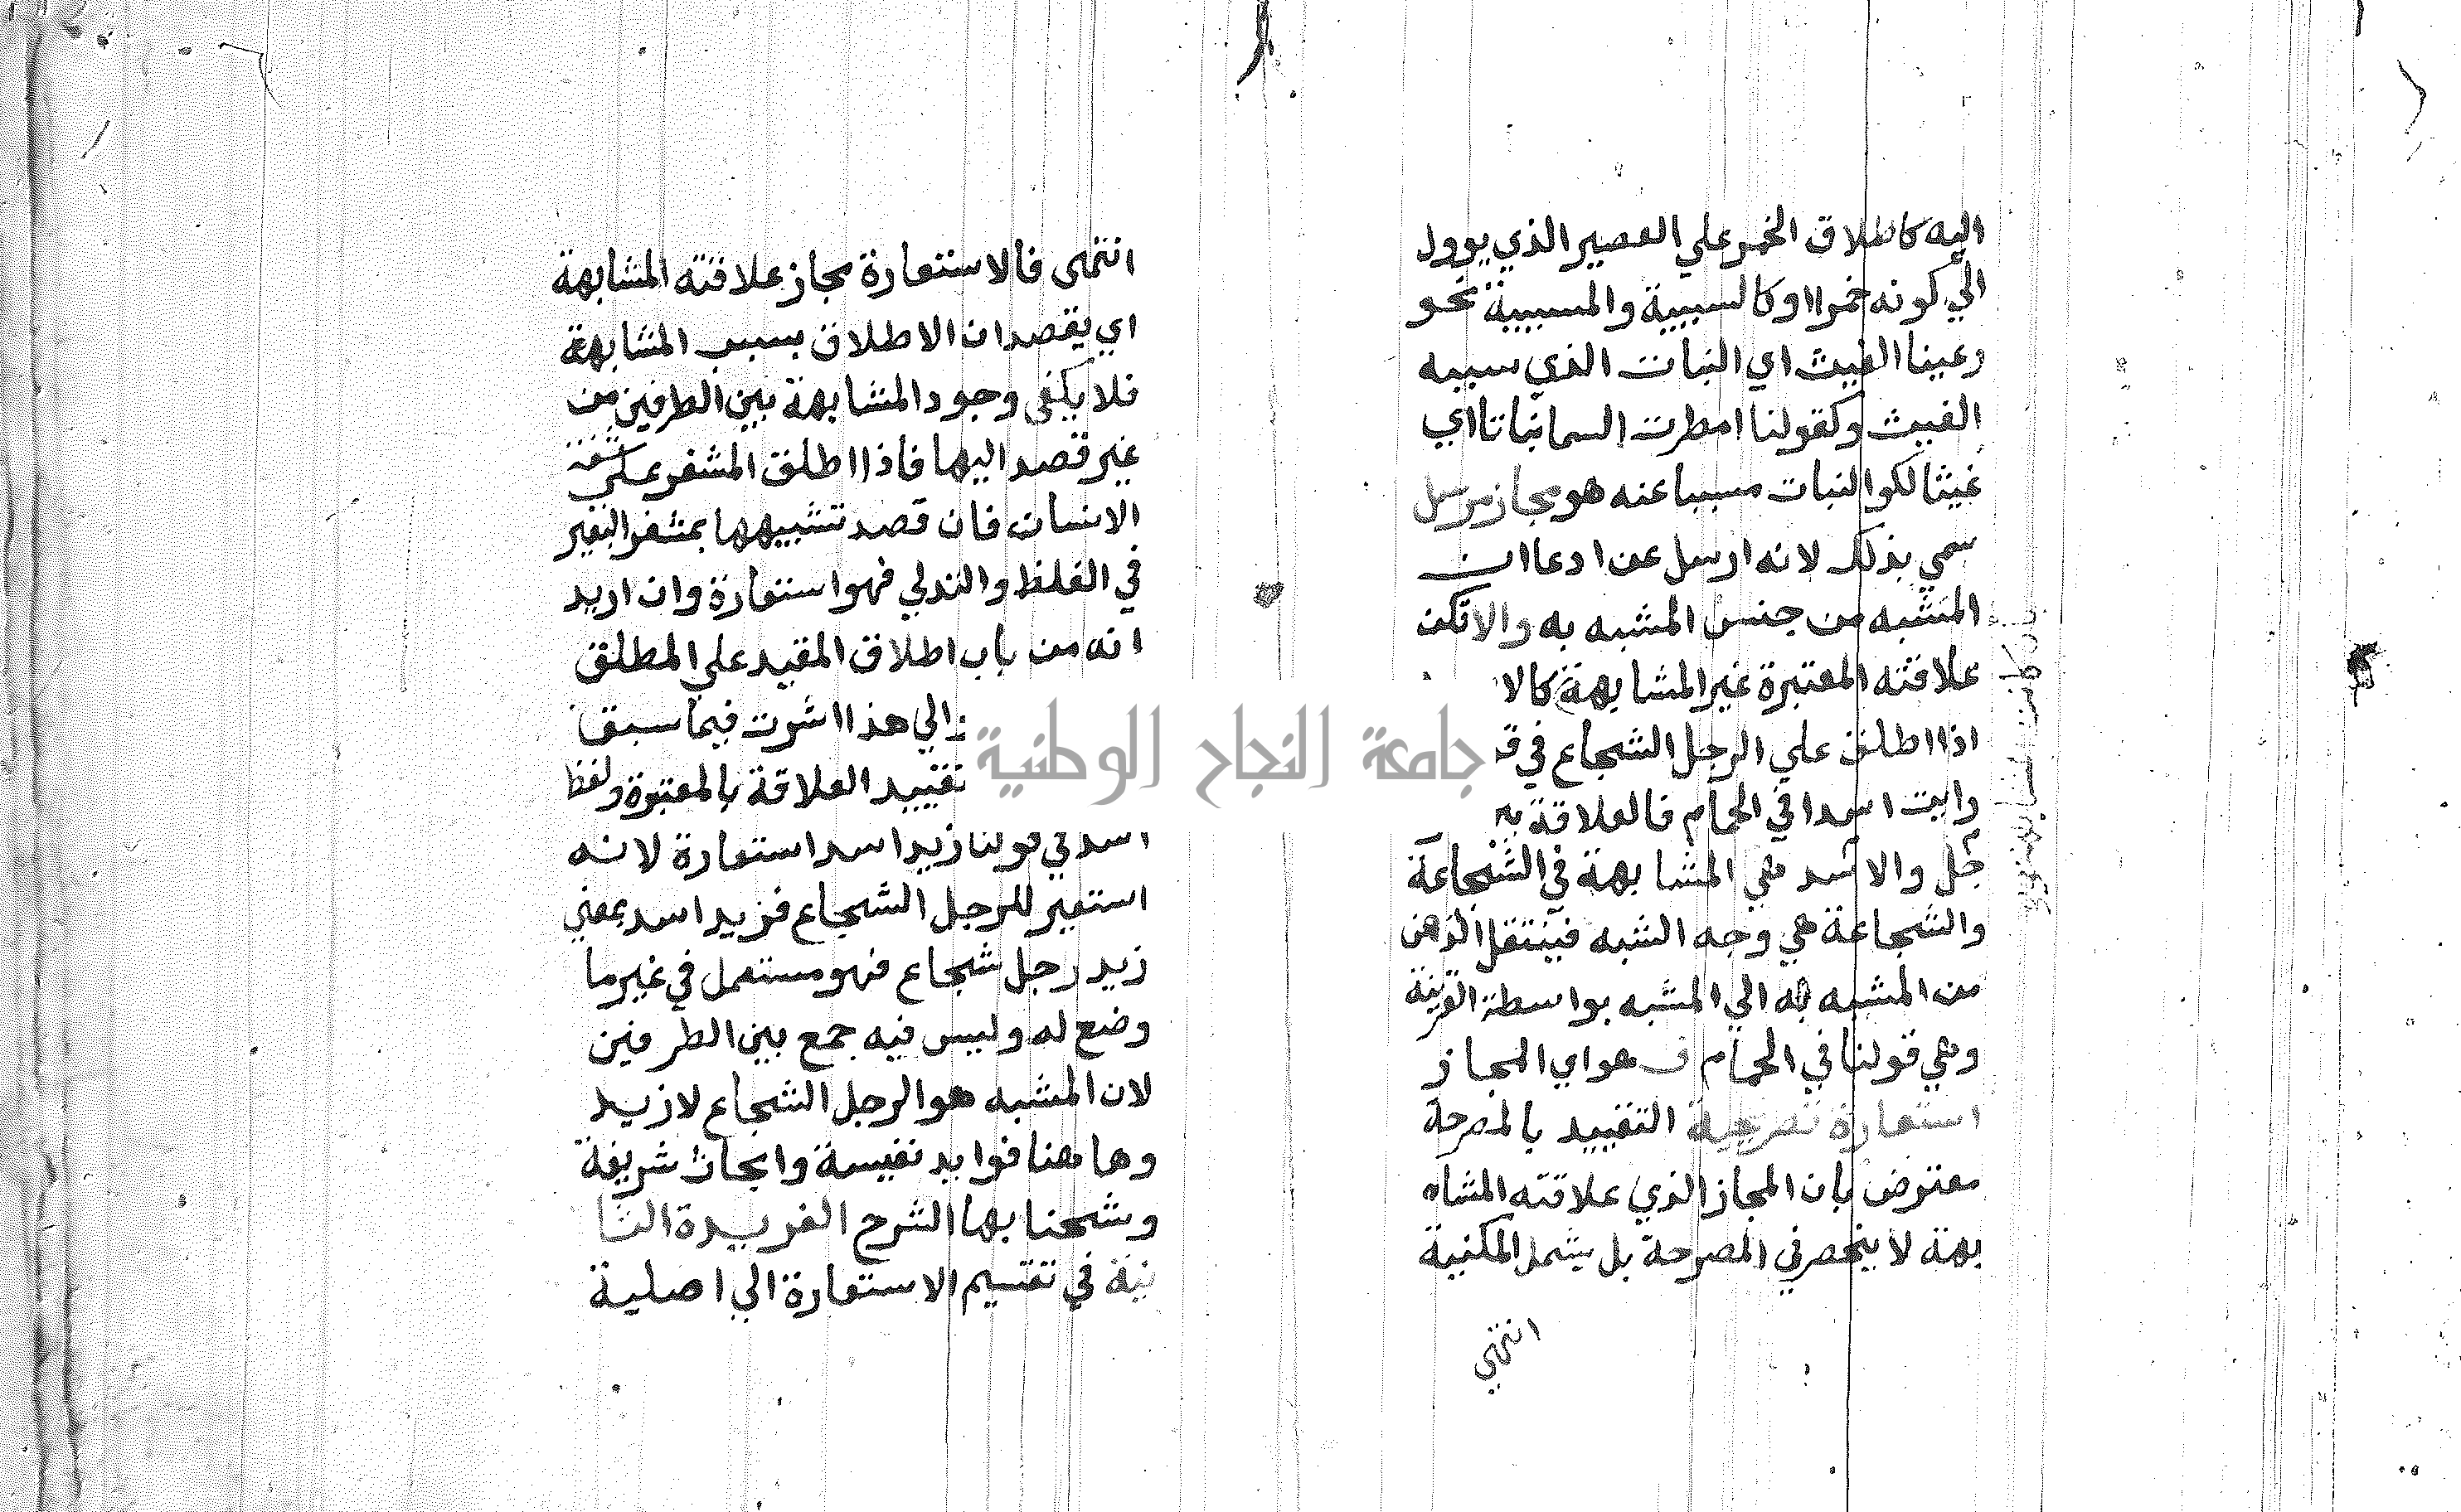 اليه كاطلاق الخمر علي العصير الذي يوول
الي كونه خمرا اوكالسببية والمسببية نحو
رعينا الغيث اي النبات الذي سببه
الغيث وكقولنا امطرت السما نباتا اي
غيثا لكو النبات مسببا عنه هو مجاز مرسل
سمي بذلك لانه ارسل عن ادعا ان
المشبه من جنس المشبه به والا تكن
علاقته المعتبرة غير المشابهة كالا
اذا اطلق علي الرجل الشجاع في
رايت اسدا في الحمام فالعلاقة
جل والاسد هي المشابهة في الشجاعة
والشجاعة هي وجه الشبه فينتقل الذهن
من المشبه به الي المشبه بواسطة القرينة
وهي قولنا في الحمام ف هو اي المجاز
استعارة تصريحية التقييد بالمصرحة
معترض بان المجاز الذي علاقته المشا
بهة لا ينحصر في المصرحة بل يشمل المكنية
انتهي
بان كانت المشابهة
جامعة النجاح الوطنية
انتهى فالاستعارة مجاز علاقته المشابهة
اي يقصد ان الاطلاق بسبب المشابهة
فلا يكفى وجود المشابهة بين الطرفين من
غير قصد اليها فاذا اطلق المشفر على شفة
الانسان فان قصد تشبيهها بمشفر البعير
في الغلظ والتدلي فهو استعارة وان اريد
انه من باب اطلاق المقيد علي المطلق
والي هذا اشرت فيما سبق
تقييد العلاقة بالمعتبرة ولفظ
اسد في قولنا زيد اسد استعارة لانه
استعير للرجل الشجاع فزيد اسد بمعني
زيد رجل شجاع فهو مستعمل في غير ما
وضع له وليس فيه جمع بين الطرفين
لان المشبه هو الرجل الشجاع لا زيد
وهاهنا فوايد نفيسة وابحاث شريفة
وشحنا بها الشرح الفريدة الثا
نية في تقسيم الاستعارة الي اصلية